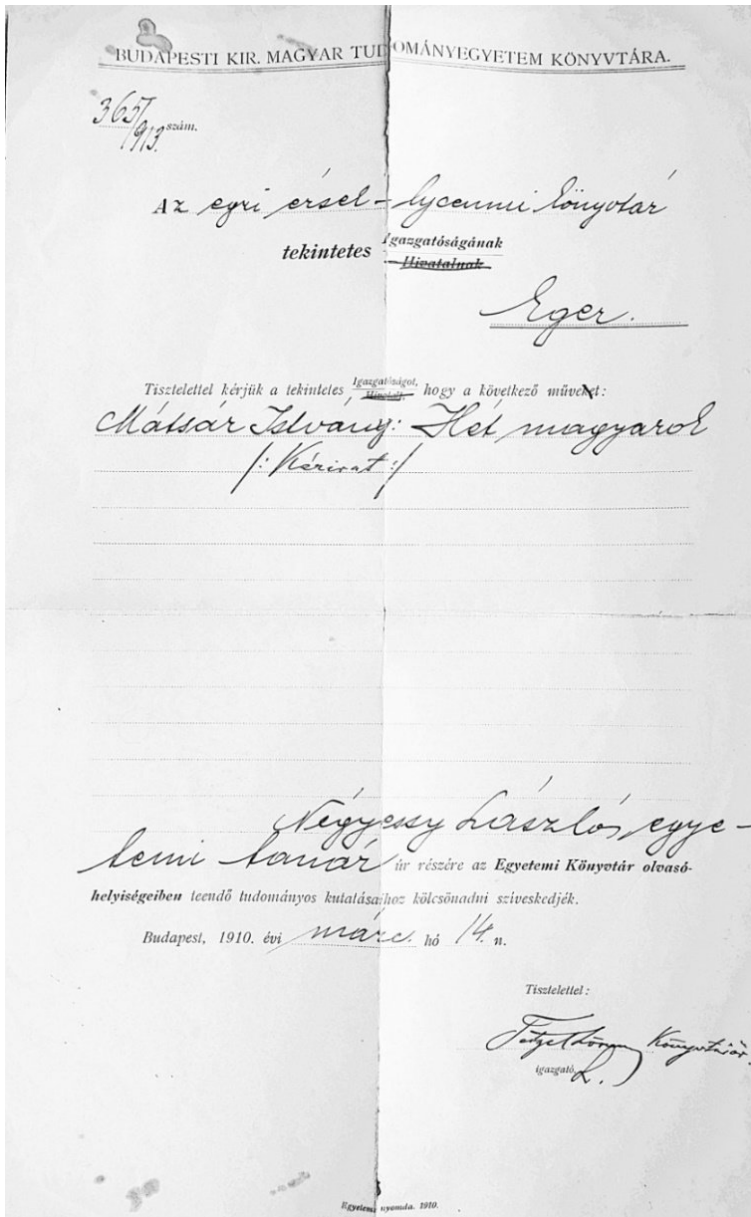 BUDAPESTI KIR. MAGYAR TUDOMÁNYEGYETEM KÖNYVTÁRA.
365/913. szám.
Az egri érsek-lyceumi könyvtár
tekintetes Igazgatóságának
Hivatalnak
Eger.
Tisztelettel kérjük a tekintetes Igazgatóságot, Hivatalt, hogy a következő műveket:
Mátsár István: Hét magyarok
/: Kézirat :/
Négyessy László, egye-
temi tanár úr részére az Egyetemi Könyvtár olvasó-
helyiségeiben teendő tudományos kutatásaihoz kölcsönadni sziveskedjék.
Budapest, 1910. évi márc. hó 14. n.
Tisztelettel:
Könyvtárőr.
igazgató
Egyetemi nyomda. 1910.